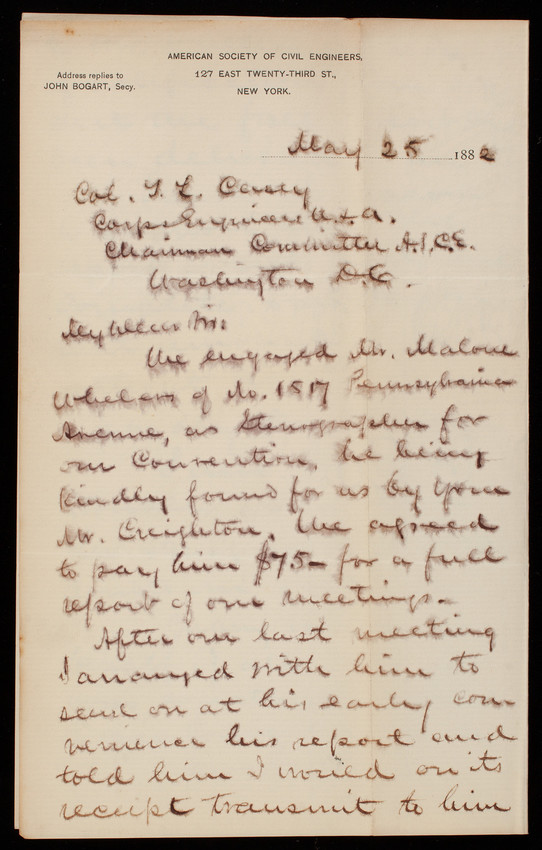 AMERICAN SOCIETY OF CIVIL ENGINEERS,
127 EAST TWENTY-THIRD ST.,
NEW YORK.
Address replies to
JOHN BOGART, Secy.
May 25 1882
Col. T. L. Casey
Corps Engineers U.S.A.
Chairman Committee A.S.C.E.
Washington D.C.
My Dear Sir:
We engaged Mr. Malone
Whelan of No. 1517 Pennsylvania
Avenue, as Stenographer for
our Convention, he being
kindly found for us by your
Mr. Creighton. We agreed
to pay him $75– for a full
report of our meetings.–
After our last meeting
I arranged with him to
send on at his early con
venience his report and
told him I would on its
receipt transmit to him